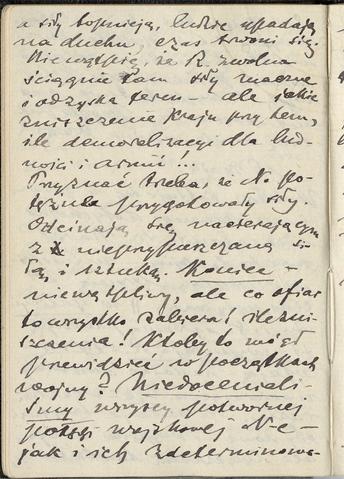 a siły topnieją, ludzie upadają
na duchu, czas trwoni się.
Nie wątpię, że R. zwolna
ściągnie tam siły znaczne
i odzyska teren – ale jakie
zniszczenie kraju przy tem,
ile demoralizacji dla lud-
ności i armii!...
Przyznać trzeba, że N. po-
tężnie przygotowały siły.
Odcinają się nacierającym
z nieprzypuszczaną si-
łą i sztuką. Koniec –
niewątpliwy, ale co ofiar
to wszystko zabiera! ile zni-
szczenia! Ktoby to mógł
przewidzieć w początkach
wojny? Niedoceniali-
śmy wszyscy potwornej
potęgi wojskowej N-c-
jak i ich zdeterminowa-